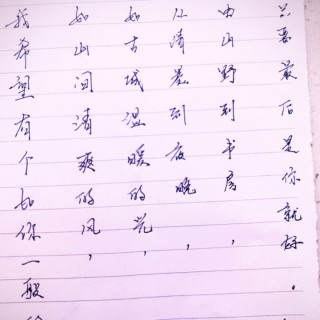 我希望有个如你一般
如山间清爽的风，
如古城温暖的光，
从清晨到夜晚，
由山野到书房，
只要最后是你就好。